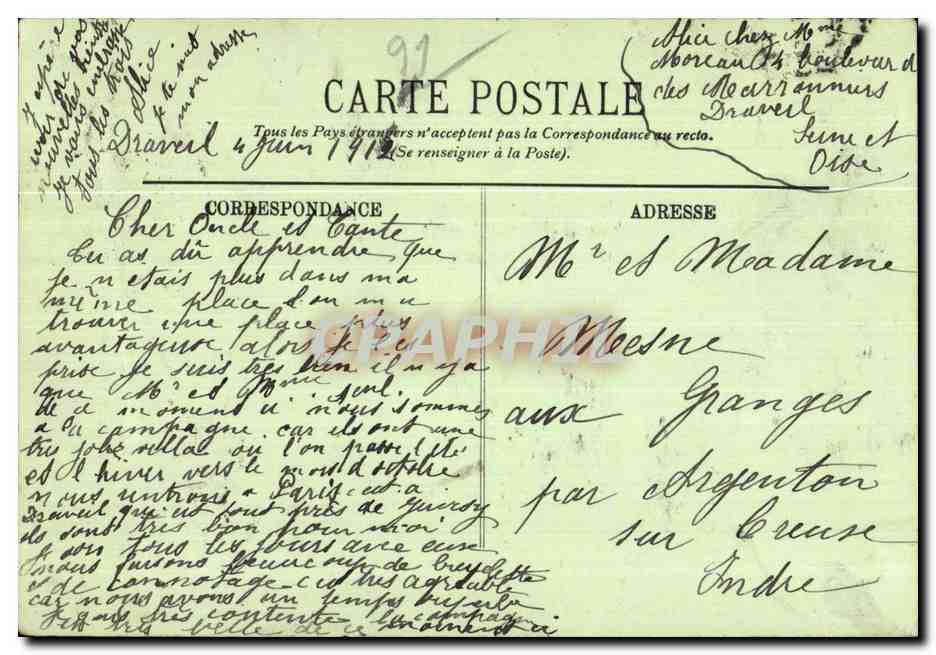 J'espère
avoir de vos
nouvelles bientôt
je vous embrasse
tous les trois
Alice
Je te met
mon adresse
91
Alice chez Mme
Moreau 4 boulevard
des Marronniers
Draveil
Seine et
Oise
CARTE POSTALE
Tous les Pays étrangers n'acceptent pas la Correspondance au recto.
(Se renseigner à la Poste).
Draveil 4 Juin 1912
CORRESPONDANCE
Cher Oncle et Tante
tu as dû apprendre que
je n etais plus dans ma
même place l'on m a
trouver une place plus
avantageuse alors je l'ai
prise je suis tres bien il n y a
que Mr et Mme seul.
en ce moment ci nous sommes
a la campagne car ils ont une
tres jolie villa ou l'on passe l'été
et l hiver vers le mois d octobre
nous rentrons a Paris c'est a
Draveil qui est tout près de Juvisy
ils sont tres bon pour moi
je sors tous les jours avec eux
nous faisons beaucoup de bicyclette
et de cannotage c'est tres agréable
car nous avons un temps superbe
je suis très contente la campagne
est très belle de ce moment ci
ADRESSE
Mr et Madame
Mesne
aux Granges
par Argenton
sur Creuse
Indre
CPAPHIL